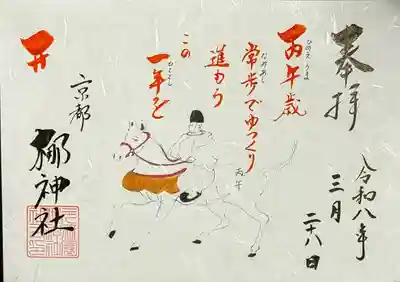 奉拝
令和八年
三月
二十八日
丙午歳
ひのえうま
常歩でゆっくり
なみあし
進もう
この
一年を
丙午
京都
梛神社